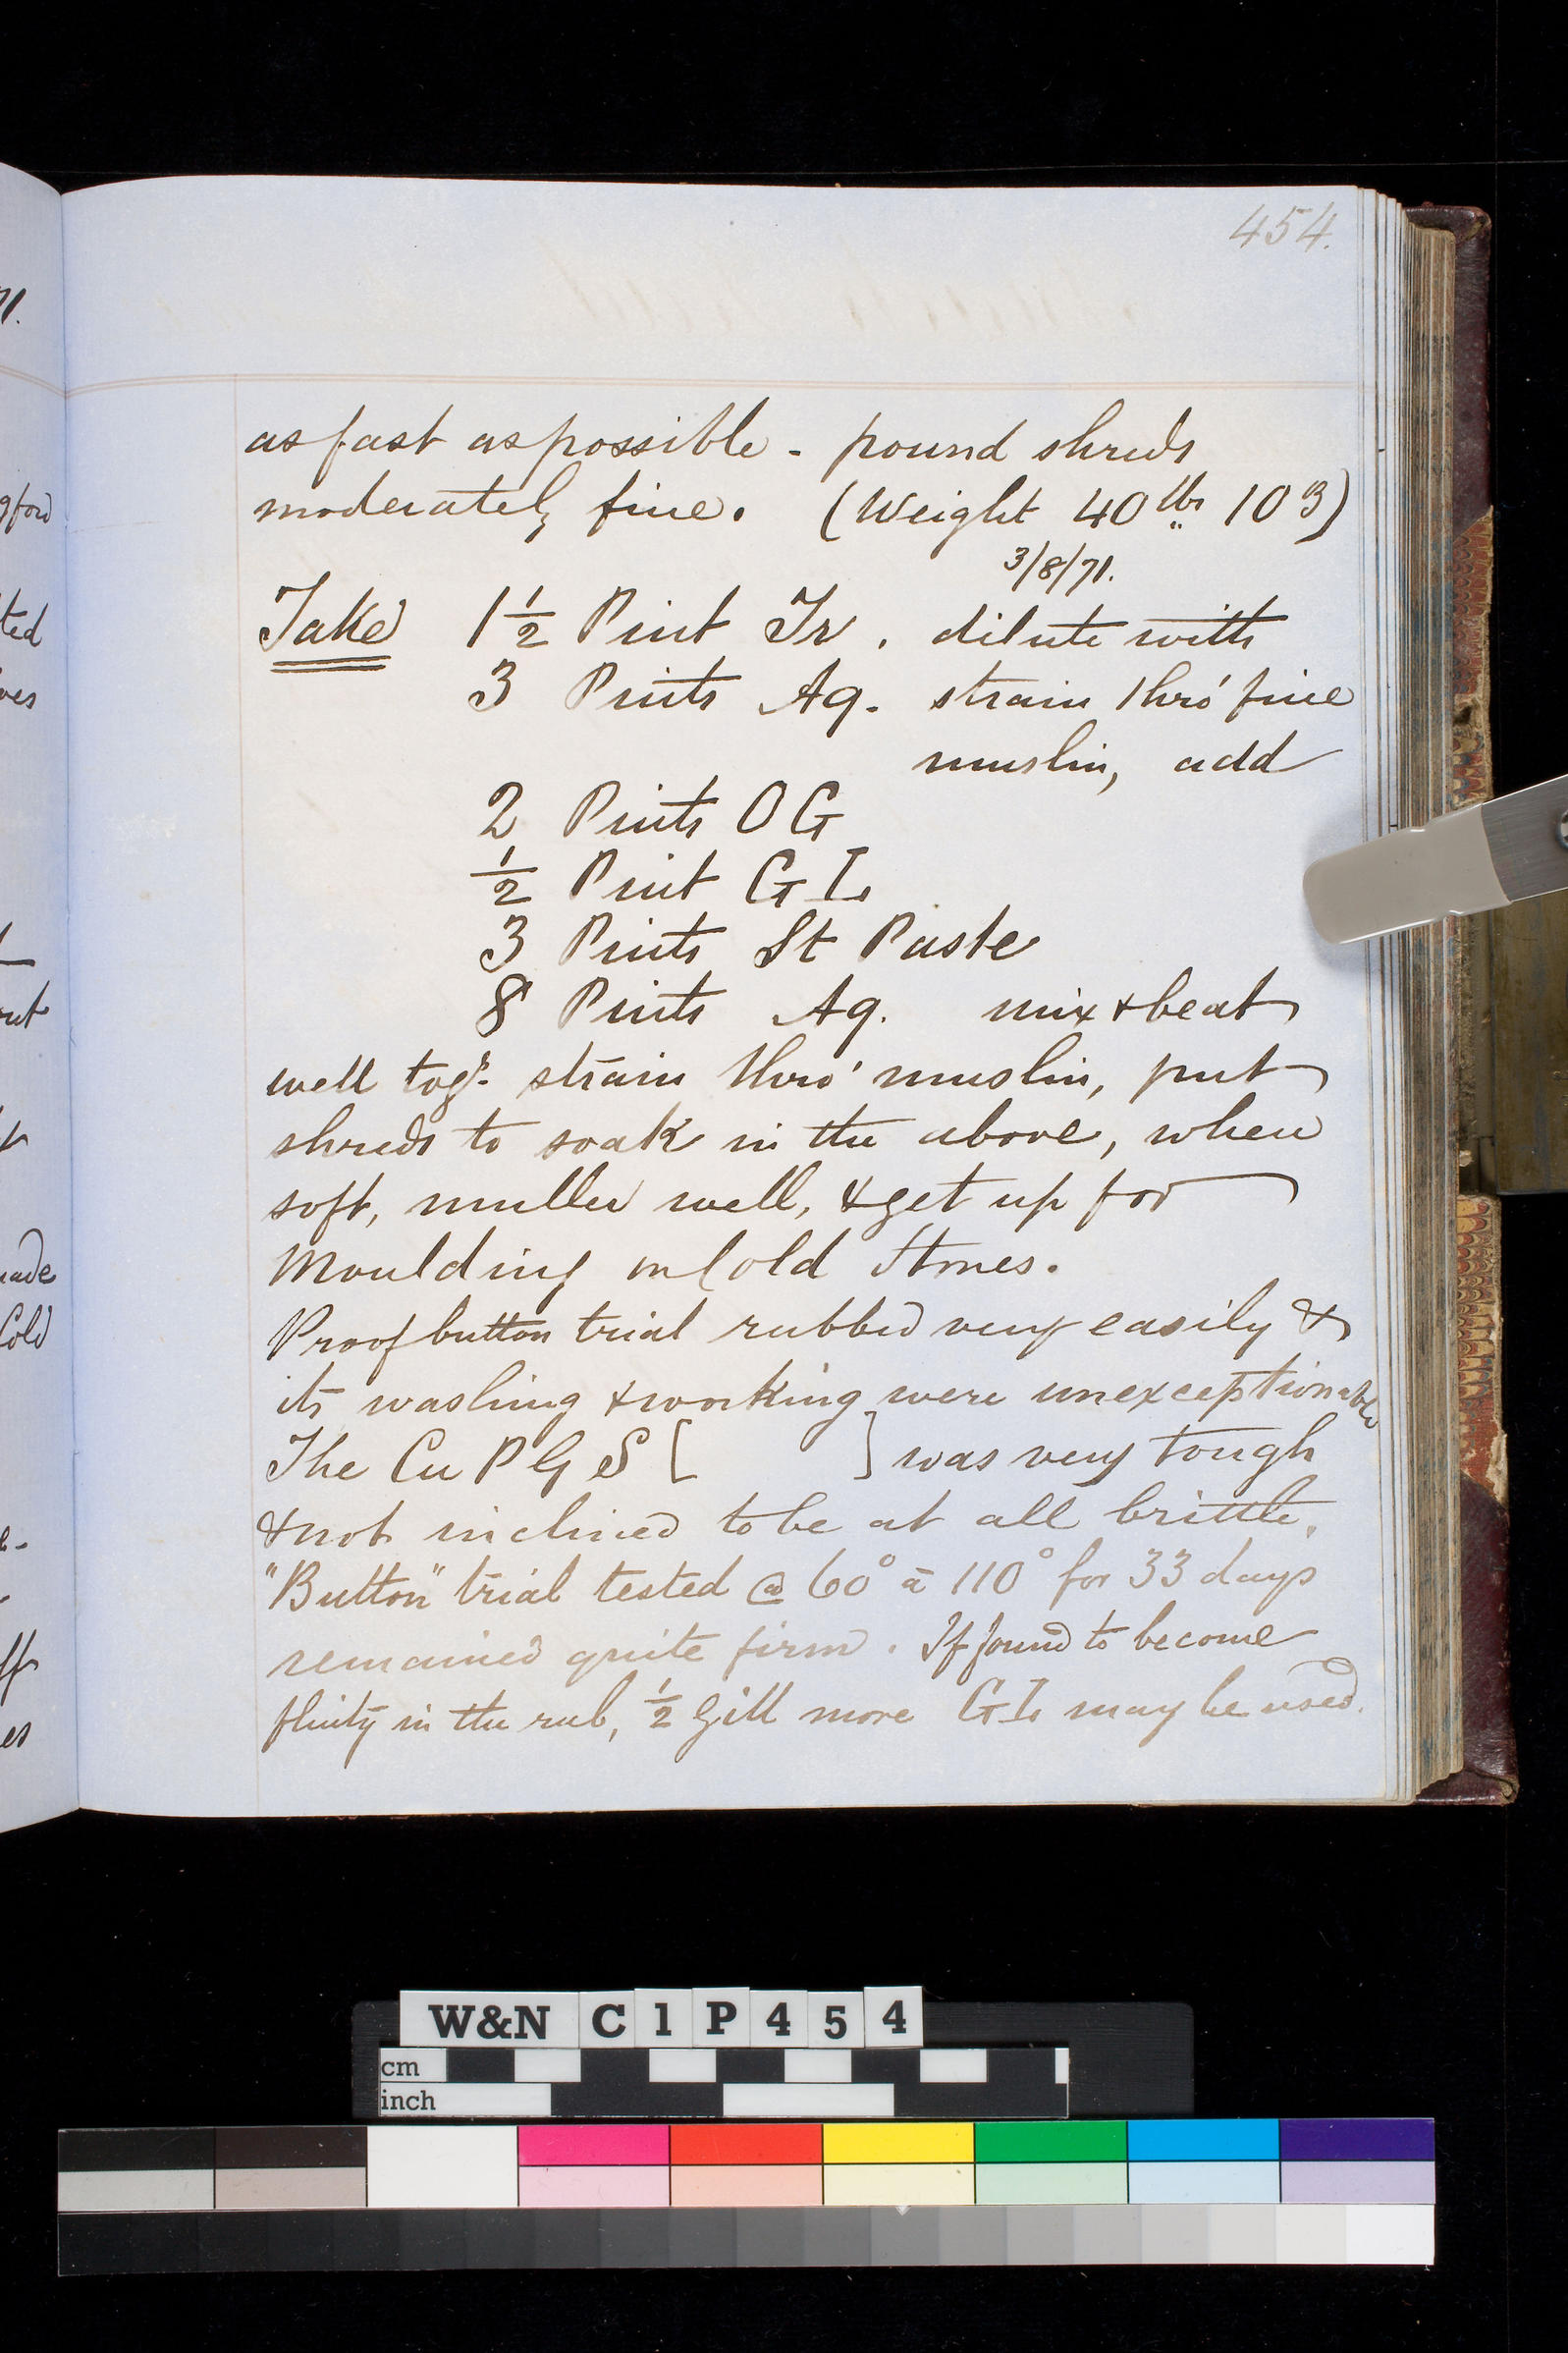 454.
71.
as fast as possible - pound shreds
moderately fine. (Weight 40 lbs 10 ℥)
3/8/71.
Take 1½ Pint Tr. dilute with
3 Pints Aq. strain thro' fine
muslin, add
2 Pints OG
½ Pint GL
3 Pints St Paste
8 Pints Aq. mix & beat
well togr. strain thro' muslin, put
shreds to soak in the above, when
soft, muller well, & get up for
Moulding on Cold Stones.
Proof button trial rubbed very easily &
its washing & working were unexceptionable
The Cu P G S [ ] was very tough
& not inclined to be at all brittle.
"Button" trial tested @ 60° à 110° for 33 days
remained quite firm. If found to become
flinty in the rub, ½ Gill more GL may be used.
W&N C1P454
cm
inch